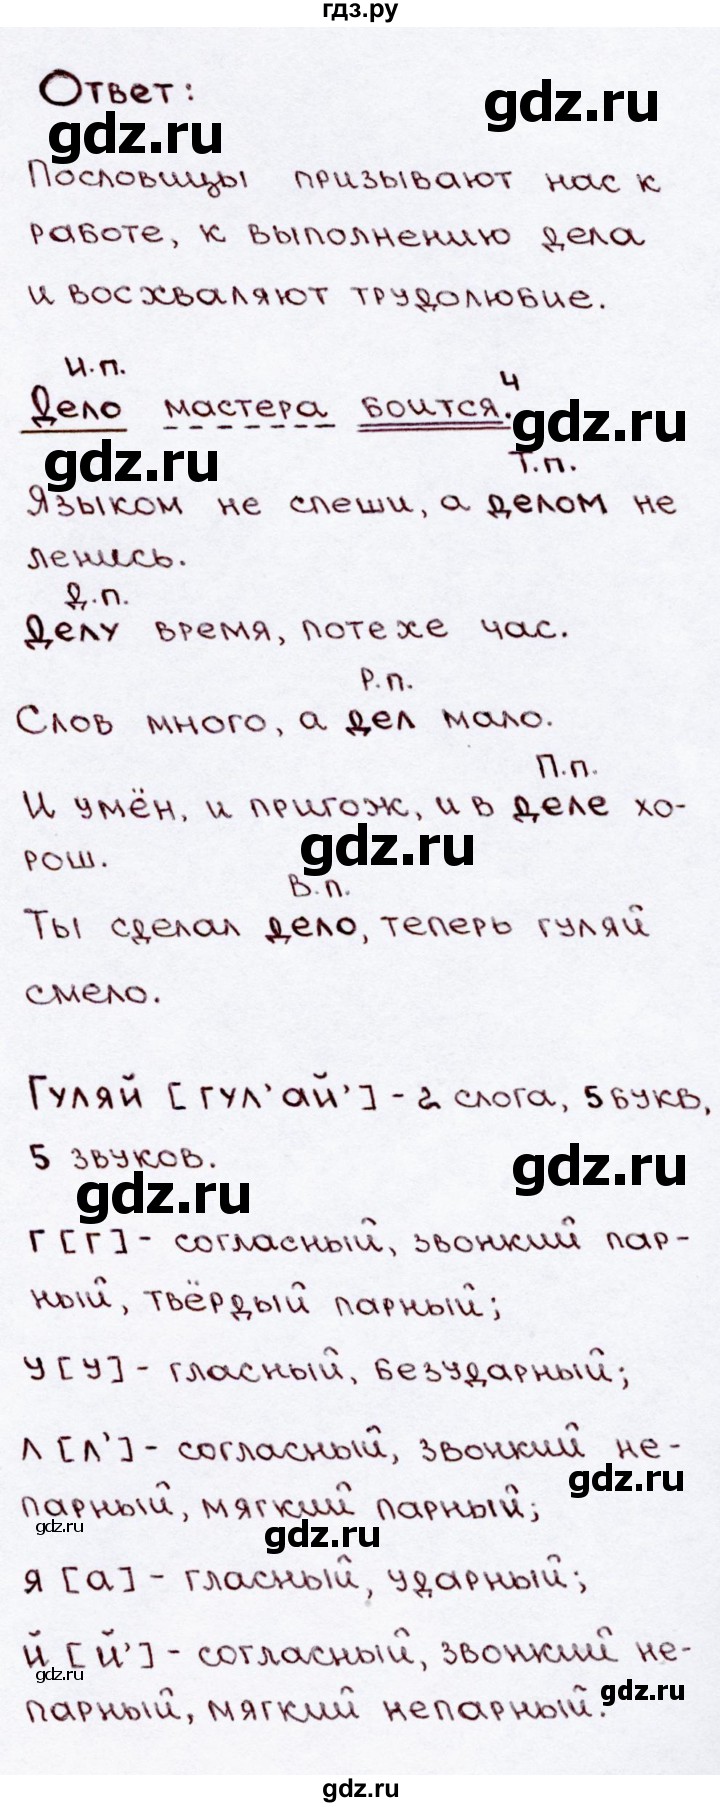 гдз.ру
Ответ:
gdz.ru
gdz.ru
Пословицы призывают нас к
работе, к выполнению дела
и восхваляют трудолюбие.
И.п.
4
Дело мастера боится.
gdz.ru
gdz.ru
Т.п.
Языком не спеши, а делом не
ленись.
Д.п.
Делу время, потехе час.
Р.п.
Слов много, а дел мало.
П.п.
И умён, и пригож, и в деле хо-
рош.
gdz.ru
В.п.
Ты сделал дело, теперь гуляй
смело.
Гуляй [гул'ай'] - 2 слога, 5 букв,
5 звуков.
gdz.ru
gdz.ru
г [г] - согласный, звонкий пар-
ный, твёрдый парный;
у [у] - гласный, безударный;
л [л'] - согласный, звонкий не-
gdz.ru
парный, мягкий парный;
gdz.ru
gdz.ru
я [а] - гласный, ударный;
й [й'] - согласный, звонкий не-
gdz.ru
gdz.ru
парный, мягкий непарный.
gdz.ru